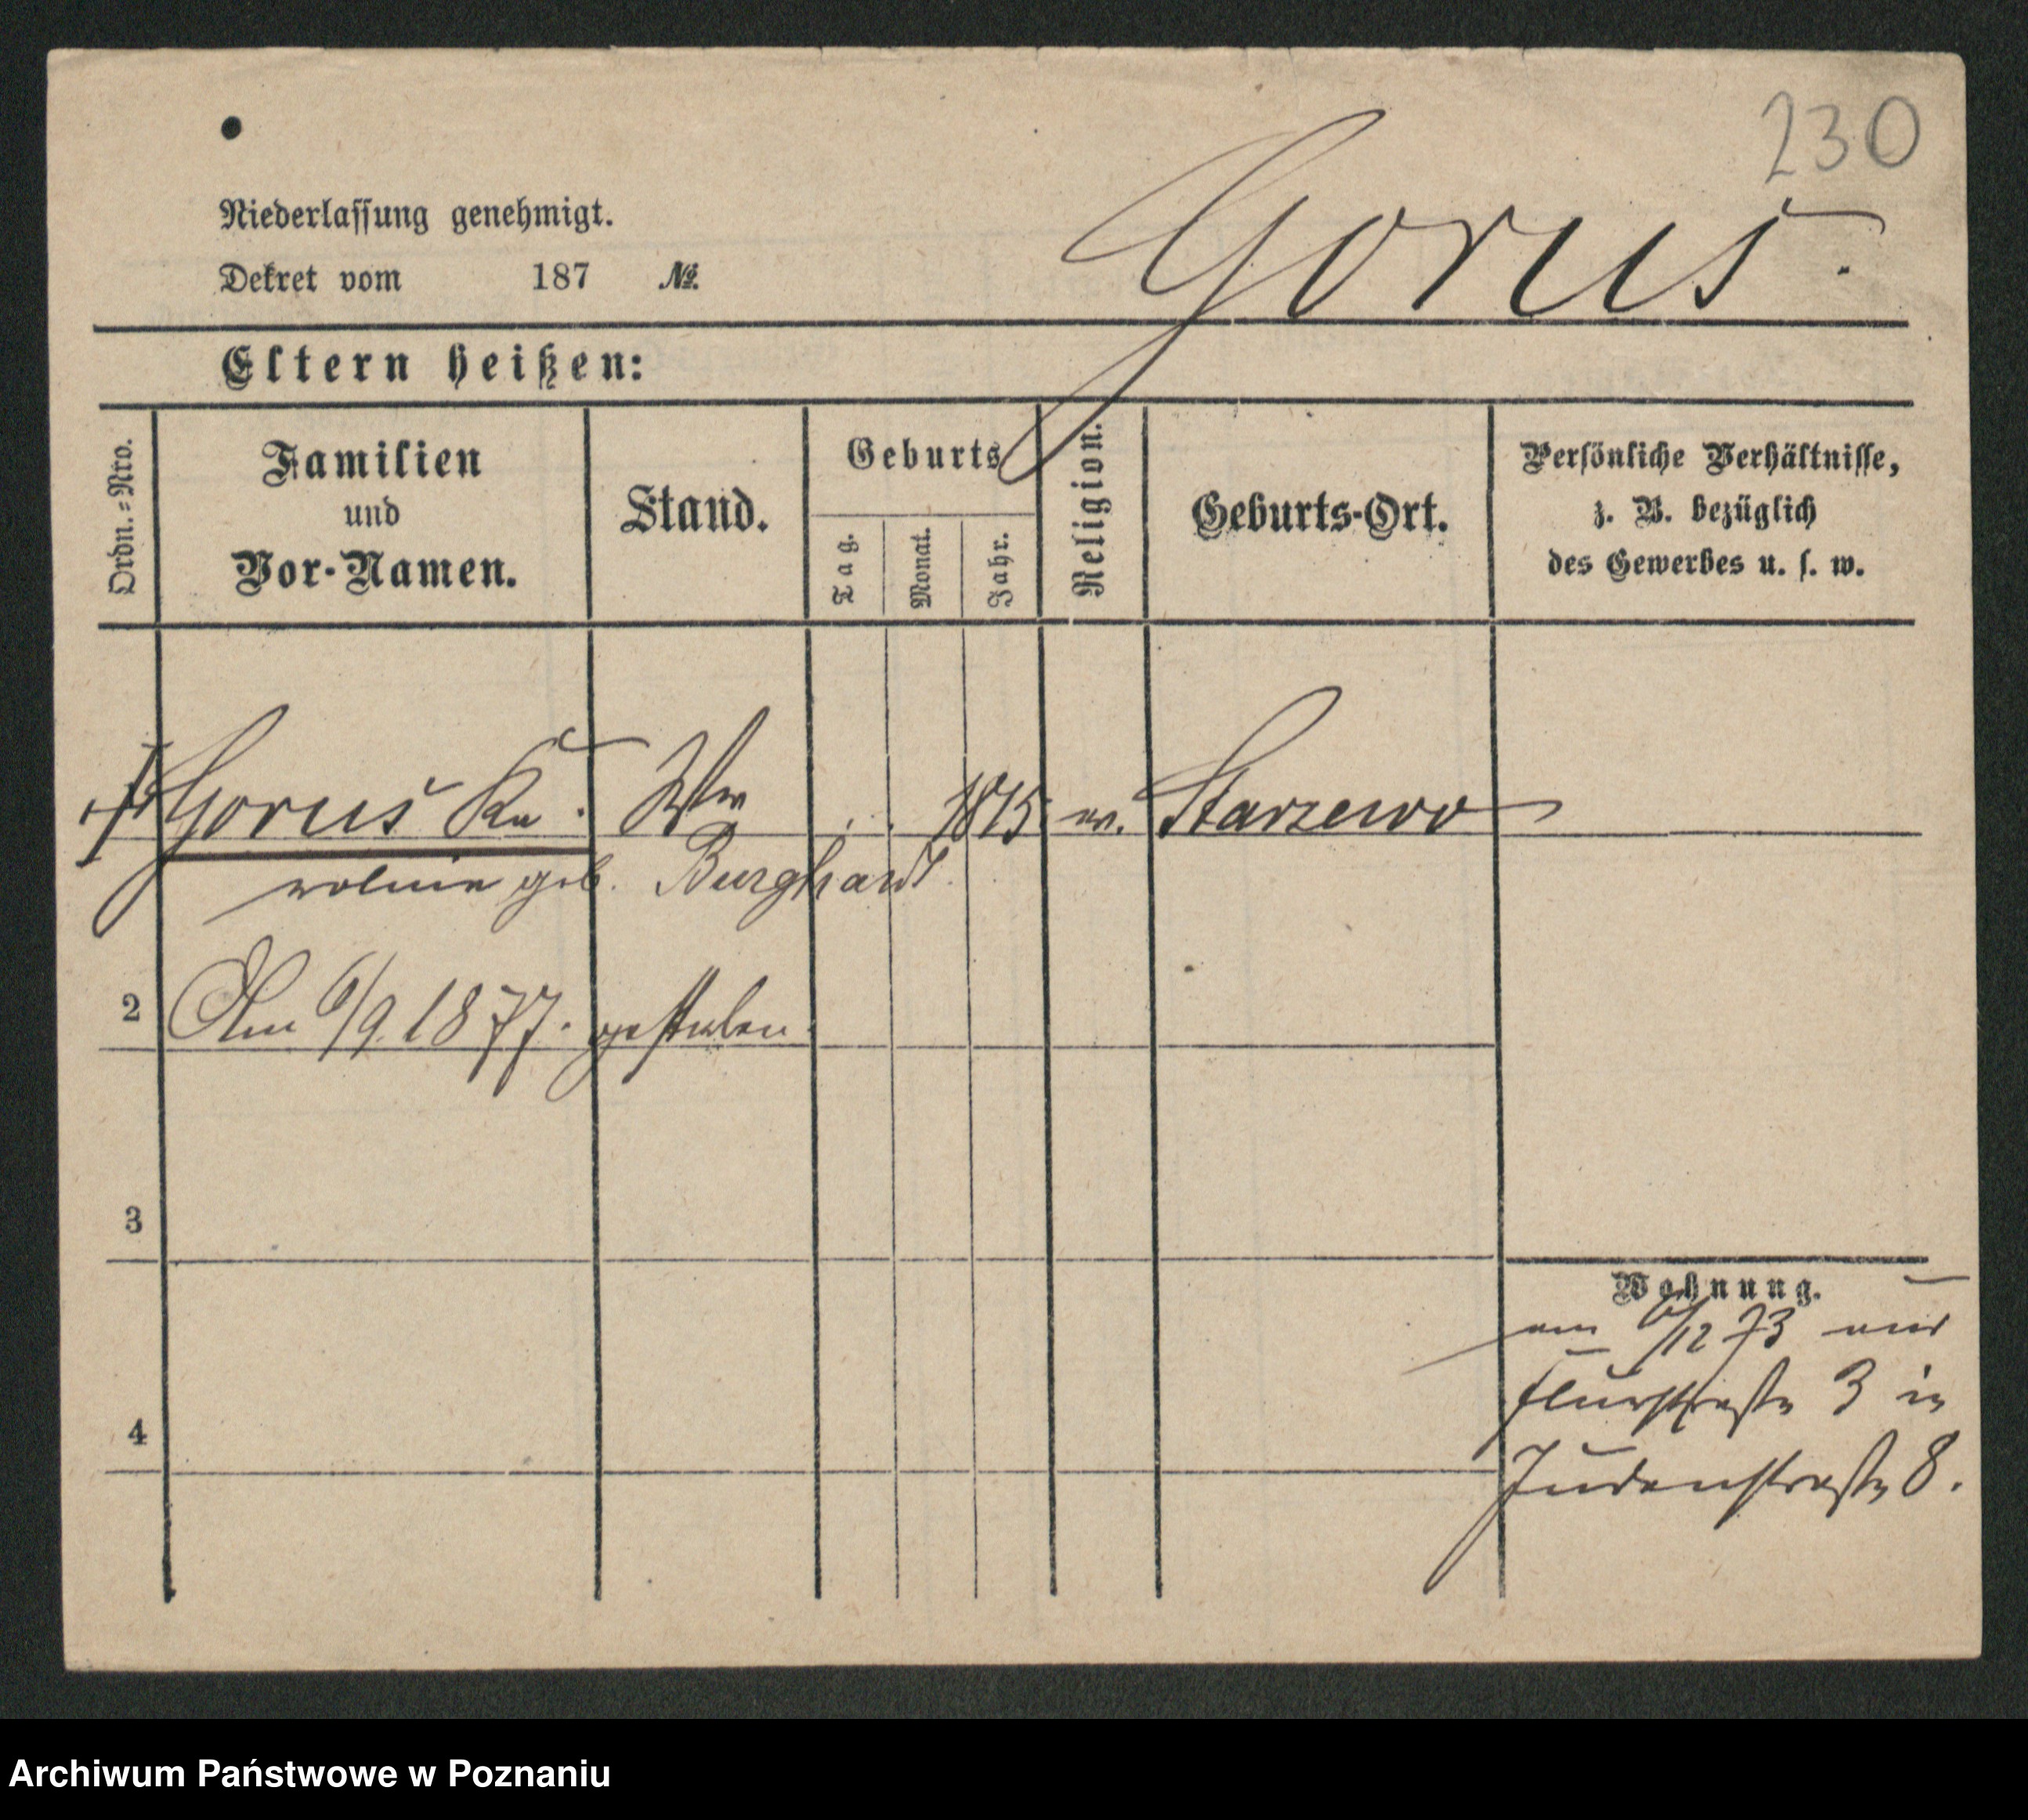 230
Niederlassung genehmigt.
Dekret vom 187 №.
Gorus.
Eltern heißen:
Ordn.-Nro.
Familien und Vor-Namen.
Stand.
Geburts
Tag.
Monat.
Jahr.
Religion.
Geburts-Ort.
Persönliche Verhältnisse,
z. B. bezüglich
des Gewerbes u. s. w.
Gorus Ka Ww 1815 ev. Starzewo
roline geb. Burghardt.
2 Am 6/9. 1877. gestorben.
3
Wohnung.
am 6/12 73 aus
Flurstraße 3 in
4
Judenstraße 8.
Archiwum Państwowe w Poznaniu